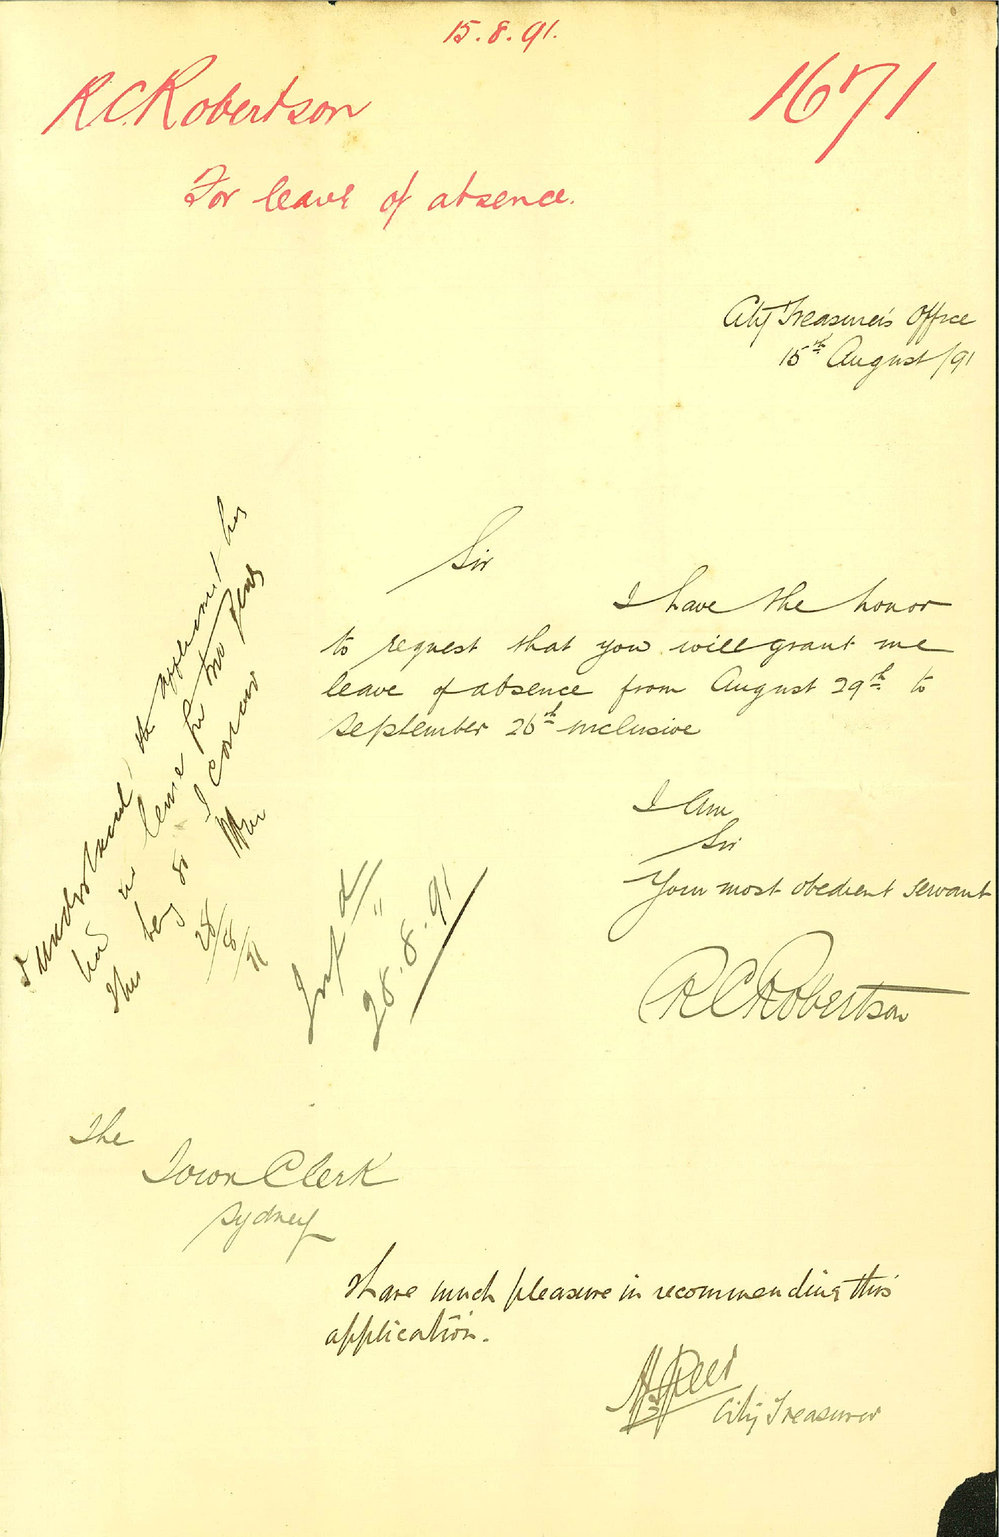 15.8.91.
R.C. Robertson
1671
For leave of absence.
City Treasurer's Office
15th August /91
Sir
I have the honor
to request that you will grant me
leave of absence from August 29th to
September 26th inclusive
I am
Sir
Your most obedient servant
R C Robertson
I understand the applicant has
had no leave for two years
this being so I concur
28/8/91
28.8.91
The
Town Clerk
Sydney
I have much pleasure in recommending this
application.
City Treasurer